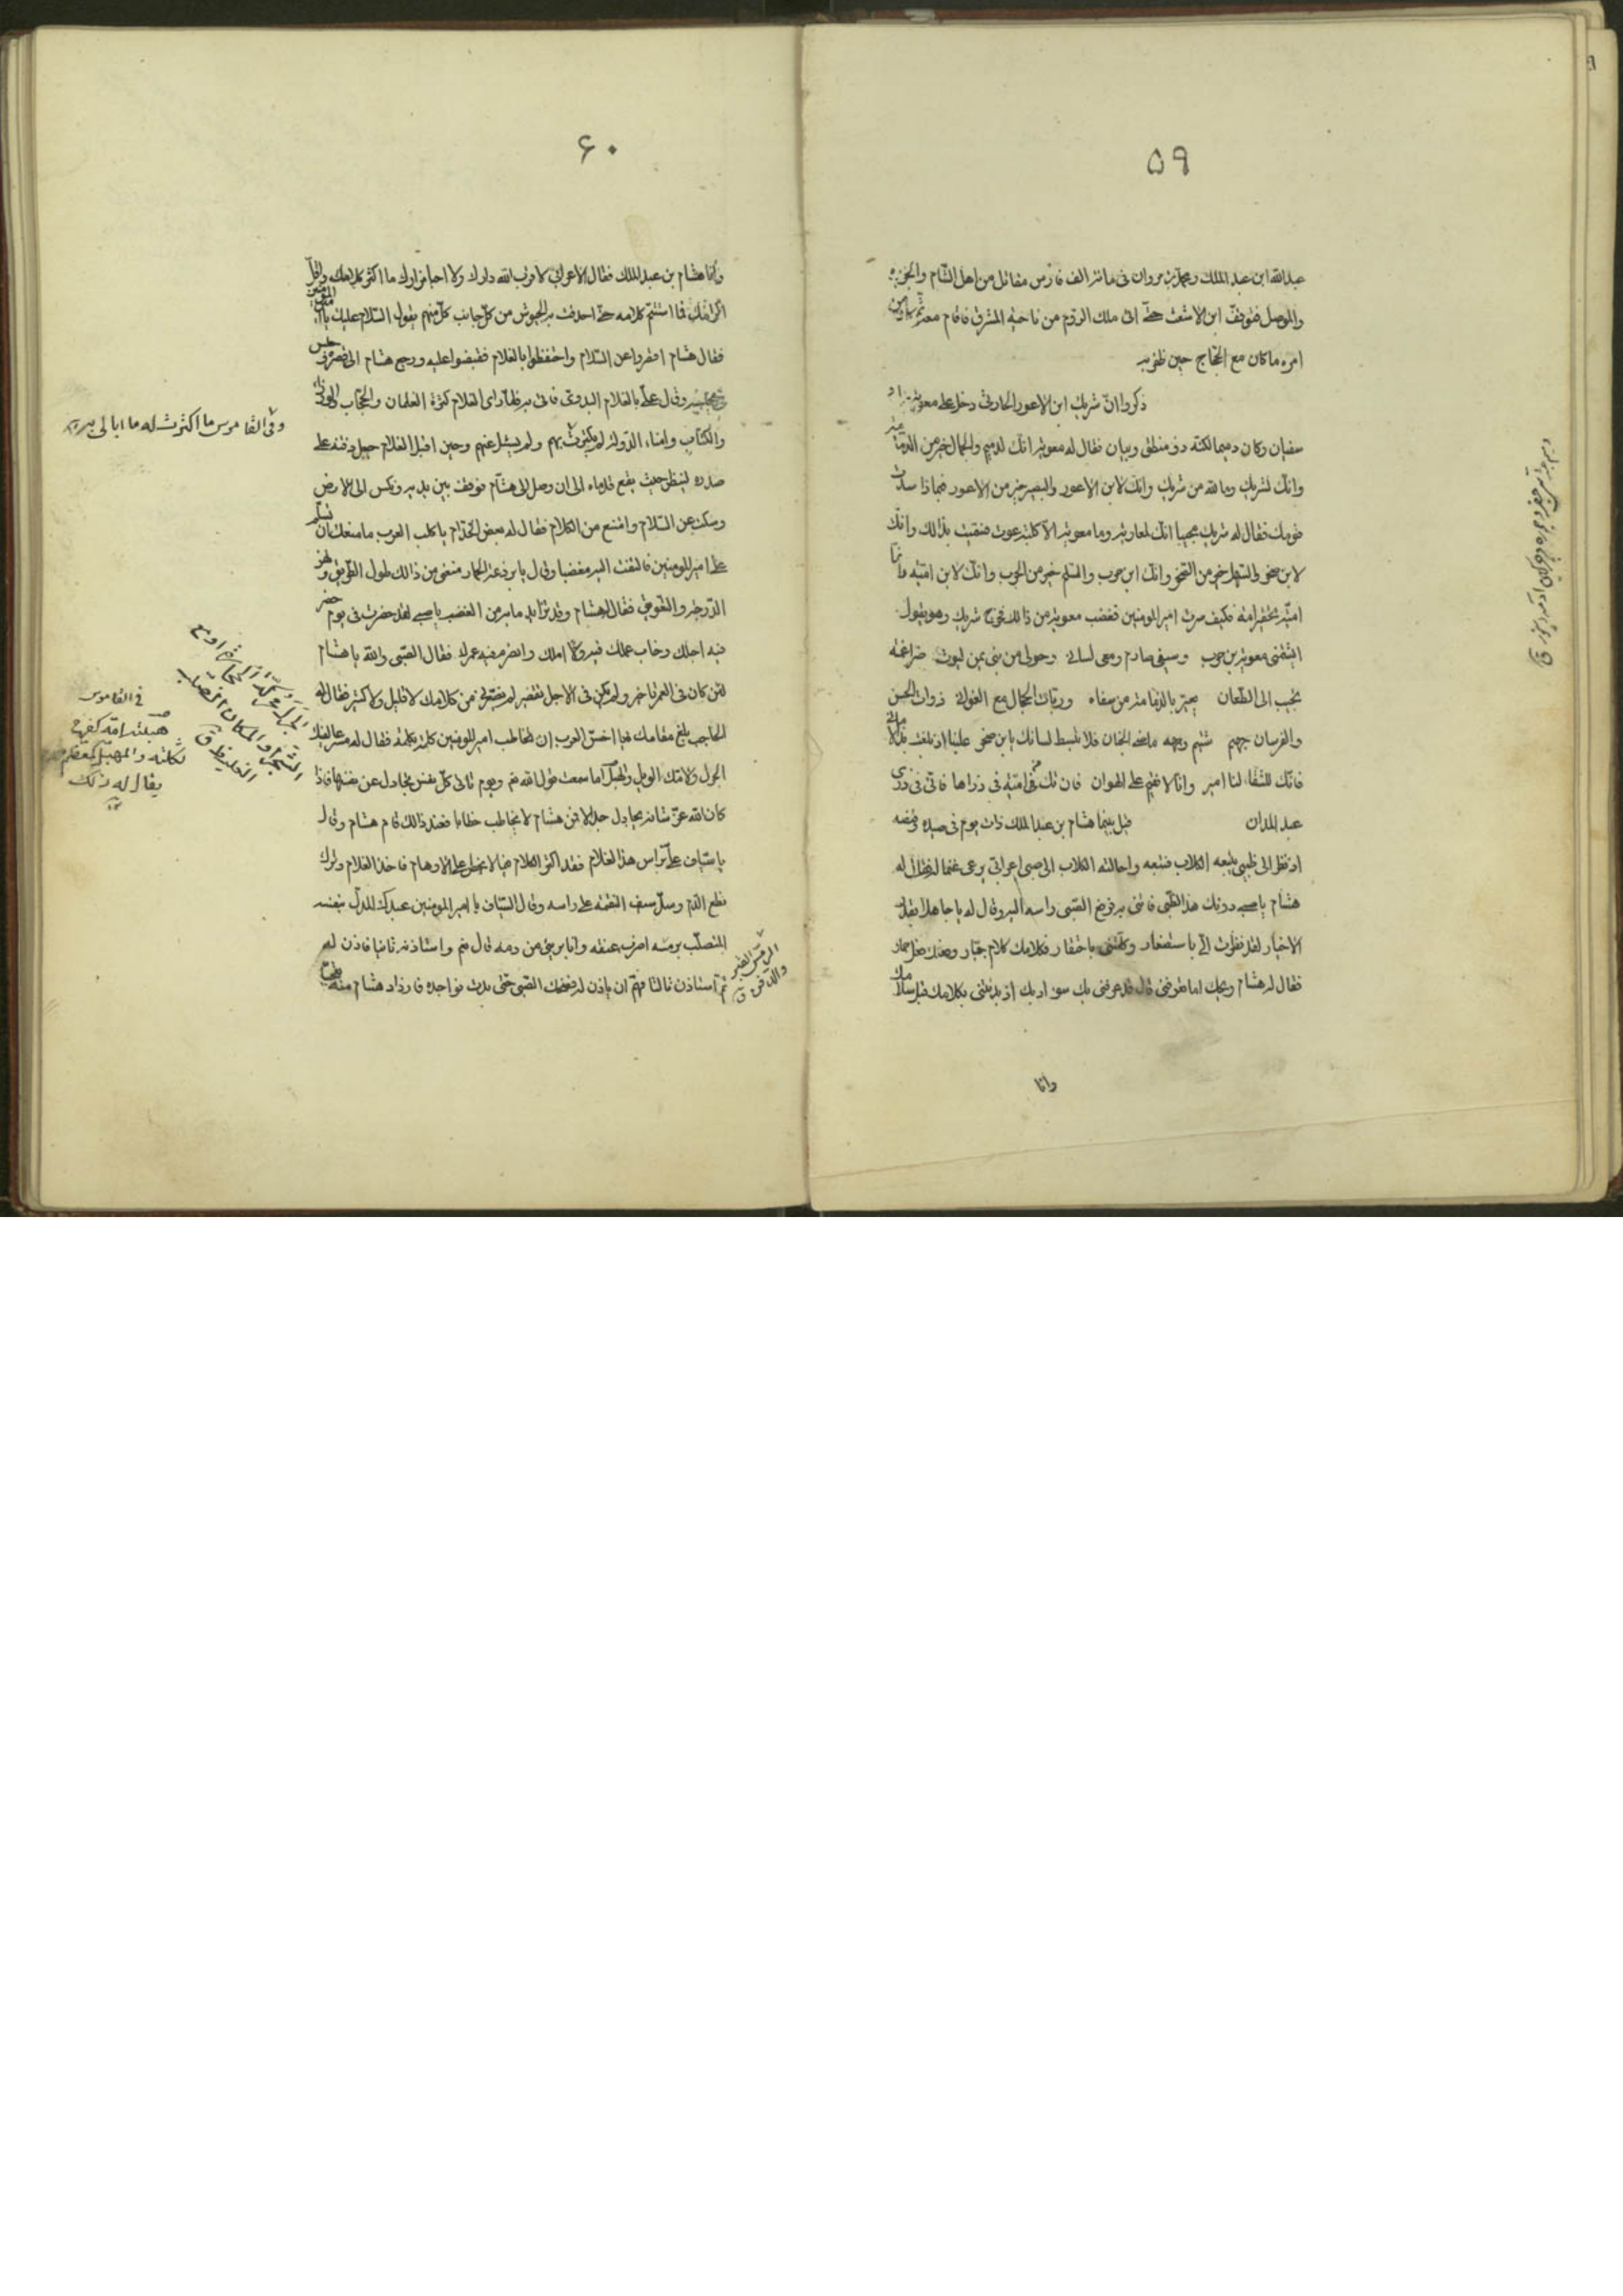 ۵۹
عبدالله ابن عبد الملك ومحمد بن مروان فى مائة الف فارس مقاتل من اهل الشام والجزيرة
والموصل فتوقف ابن الاشعث حتى اتى ملك الروم من ناحية المشرق فاقام معه ثم كان من
امره ما كان مع الحجاج حين ظفر به
ذكروا ان شريك ابن الاعور الحارثى دخل على معوية
سفيان وكان دميما لكنه ذو منطق وبيان فقال له معوية انك لدميم والجمال خير من الدمامة
وانك لشريك وما لله من شريك وانك لابن الاعور والبصير خير من الاعور فبماذا سدت
قومك فقال له شريك مجيبا انك لمعاوية وما معوية الا كلبة عوت فنقبت بذالك وانك
لابن صخر والسهل خير من الصخر وانك ابن حرب والسلم خير من الحرب وانك لابن امية وانما
امية تحقير امة فكيف صرت امير المومنين فغضب معوية من ذالك فخرج شريك وهو يقول
ايشتمنى معوية بن حرب وسيفى صارم ومعى لسانى وحولى من بنى يمن ليوث ضراغمة
نجب الى الطعان يعير بالدمامة من سفاه وربات الجمال مع الغوانى ذوات الحسن
والفرسان جهم شتيم وجهه ماضى الجنان فلا تبسط لسانك يابن صخر علينا اذ بلغت
فانك للشقا لنا امير وانا لا نقيم على الهوان فان تك من امية فى ذراها فانى فى ذرى
عبد المدان قيل بينما هشام بن عبد الملك ذات يوم فى صيده وقنصه
اذ نظر الى ظبى يتبعه الكلاب فتبعه واحالته الكلاب الى صبى اعرابى يرعى غنما له فقال له
هشام يا صبى دونك هذا الظبى فاتنى به فرفع الصبى راسه اليه وقال له يا جاهلا بقدر
الاخيار لقد نظرت الى باستصغار وكلمتنى باحتقار فكلامك كلام جبار وفعلك فعل حمار
فقال له هشام ويحك اما تعرفنى قال قد عرفنى بك سوء ادبك اذ بدئتنى بكلامك قبل سلامك
وانا
۶۰
وانا هشام بن عبد الملك فقال الاعرابى لا قرب الله دارك ولا احيا مزارك ما اكثر كلامك واقل
اكرامك فما استتم كلامه حتى احدقت به الجيوش من كل جانب كل منهم يقول السلام عليك يا امير المومنين
فقال هشام اقصروا عن السلام واحتفظوا بالغلام فقبضوا عليه ورجع هشام الى قصره
وقال على بالغلام البدوى فاتى به فلما راى الغلام كثرة الغلمان والحجاب
والكتاب وابناء الدولة لم يكترث بهم ولم يسئل عنهم وحين اقبل الغلام جعل ذقنه على
صدره لينظر حيث يقع قدماه الى ان وصل الى هشام فوقف بين يديه ونكس الى الارض
وسكت عن السلام وامتنع من الكلام فقال له بعض الخدام يا كلب العرب ما منعك ان تسلم
على امير المومنين فالتفت اليه مغضبا وقال يا بردعة الحمار منعنى من ذالك طول الطريق
الدرجة والتعويق فقال هشام وقد تزايد مابه من الغضب يا صبى لقد حضرت فى يوم حضر
فيه اجلك وخاب عملك فيه املك وانصرم فيه عمرك فقال الصبى والله يا هشام
لئن كان فى العمر تاخير ولم يكن فى الاجل تقصير لم يضرنى من كلامك لا قليل ولا كثير فقال له
الحاجب بلغ مقامك يا اخس العرب ان تخاطب امير المومنين كلمة بكلمة فقال له مسرعا لقيك
الجزل ولامك الويل والهبل اما سمعت قول الله يوم تاتى كل نفس تجادل عن نفسها فاذا
كان الله عز شانه يجادل جدالا فمن هشام لا يخاطب خطابا فعند ذالك قام هشام وقال
يا سياف على براس هذا الغلام فقد اكثر الكلام فيما لا يخطر على الاوهام فاخذ الغلام وترك
نطع الدم وسل سيف النقمة على راسه وقال السياف يا امير المومنين عبدك المدل بنفسه
المتصلب برمسه اضرب عنقه وانا برىء من دمه قال نعم واستاذنه ثانيا فاذن له
ثم استاذن ثالثا فهم ان ياذن له فضحك الصبى حتى بدت نواجده فازداد هشام منه تعجبا
وفى القاموس ما اكترث له ما ابالى به
فى القاموس
هبلته امه كفرح
ثكلته والمهبل كمعظم من
يقال له ذلك
الشجر او المكان الصلب
الغليظ ق
الرمس القبر
والدفن ق